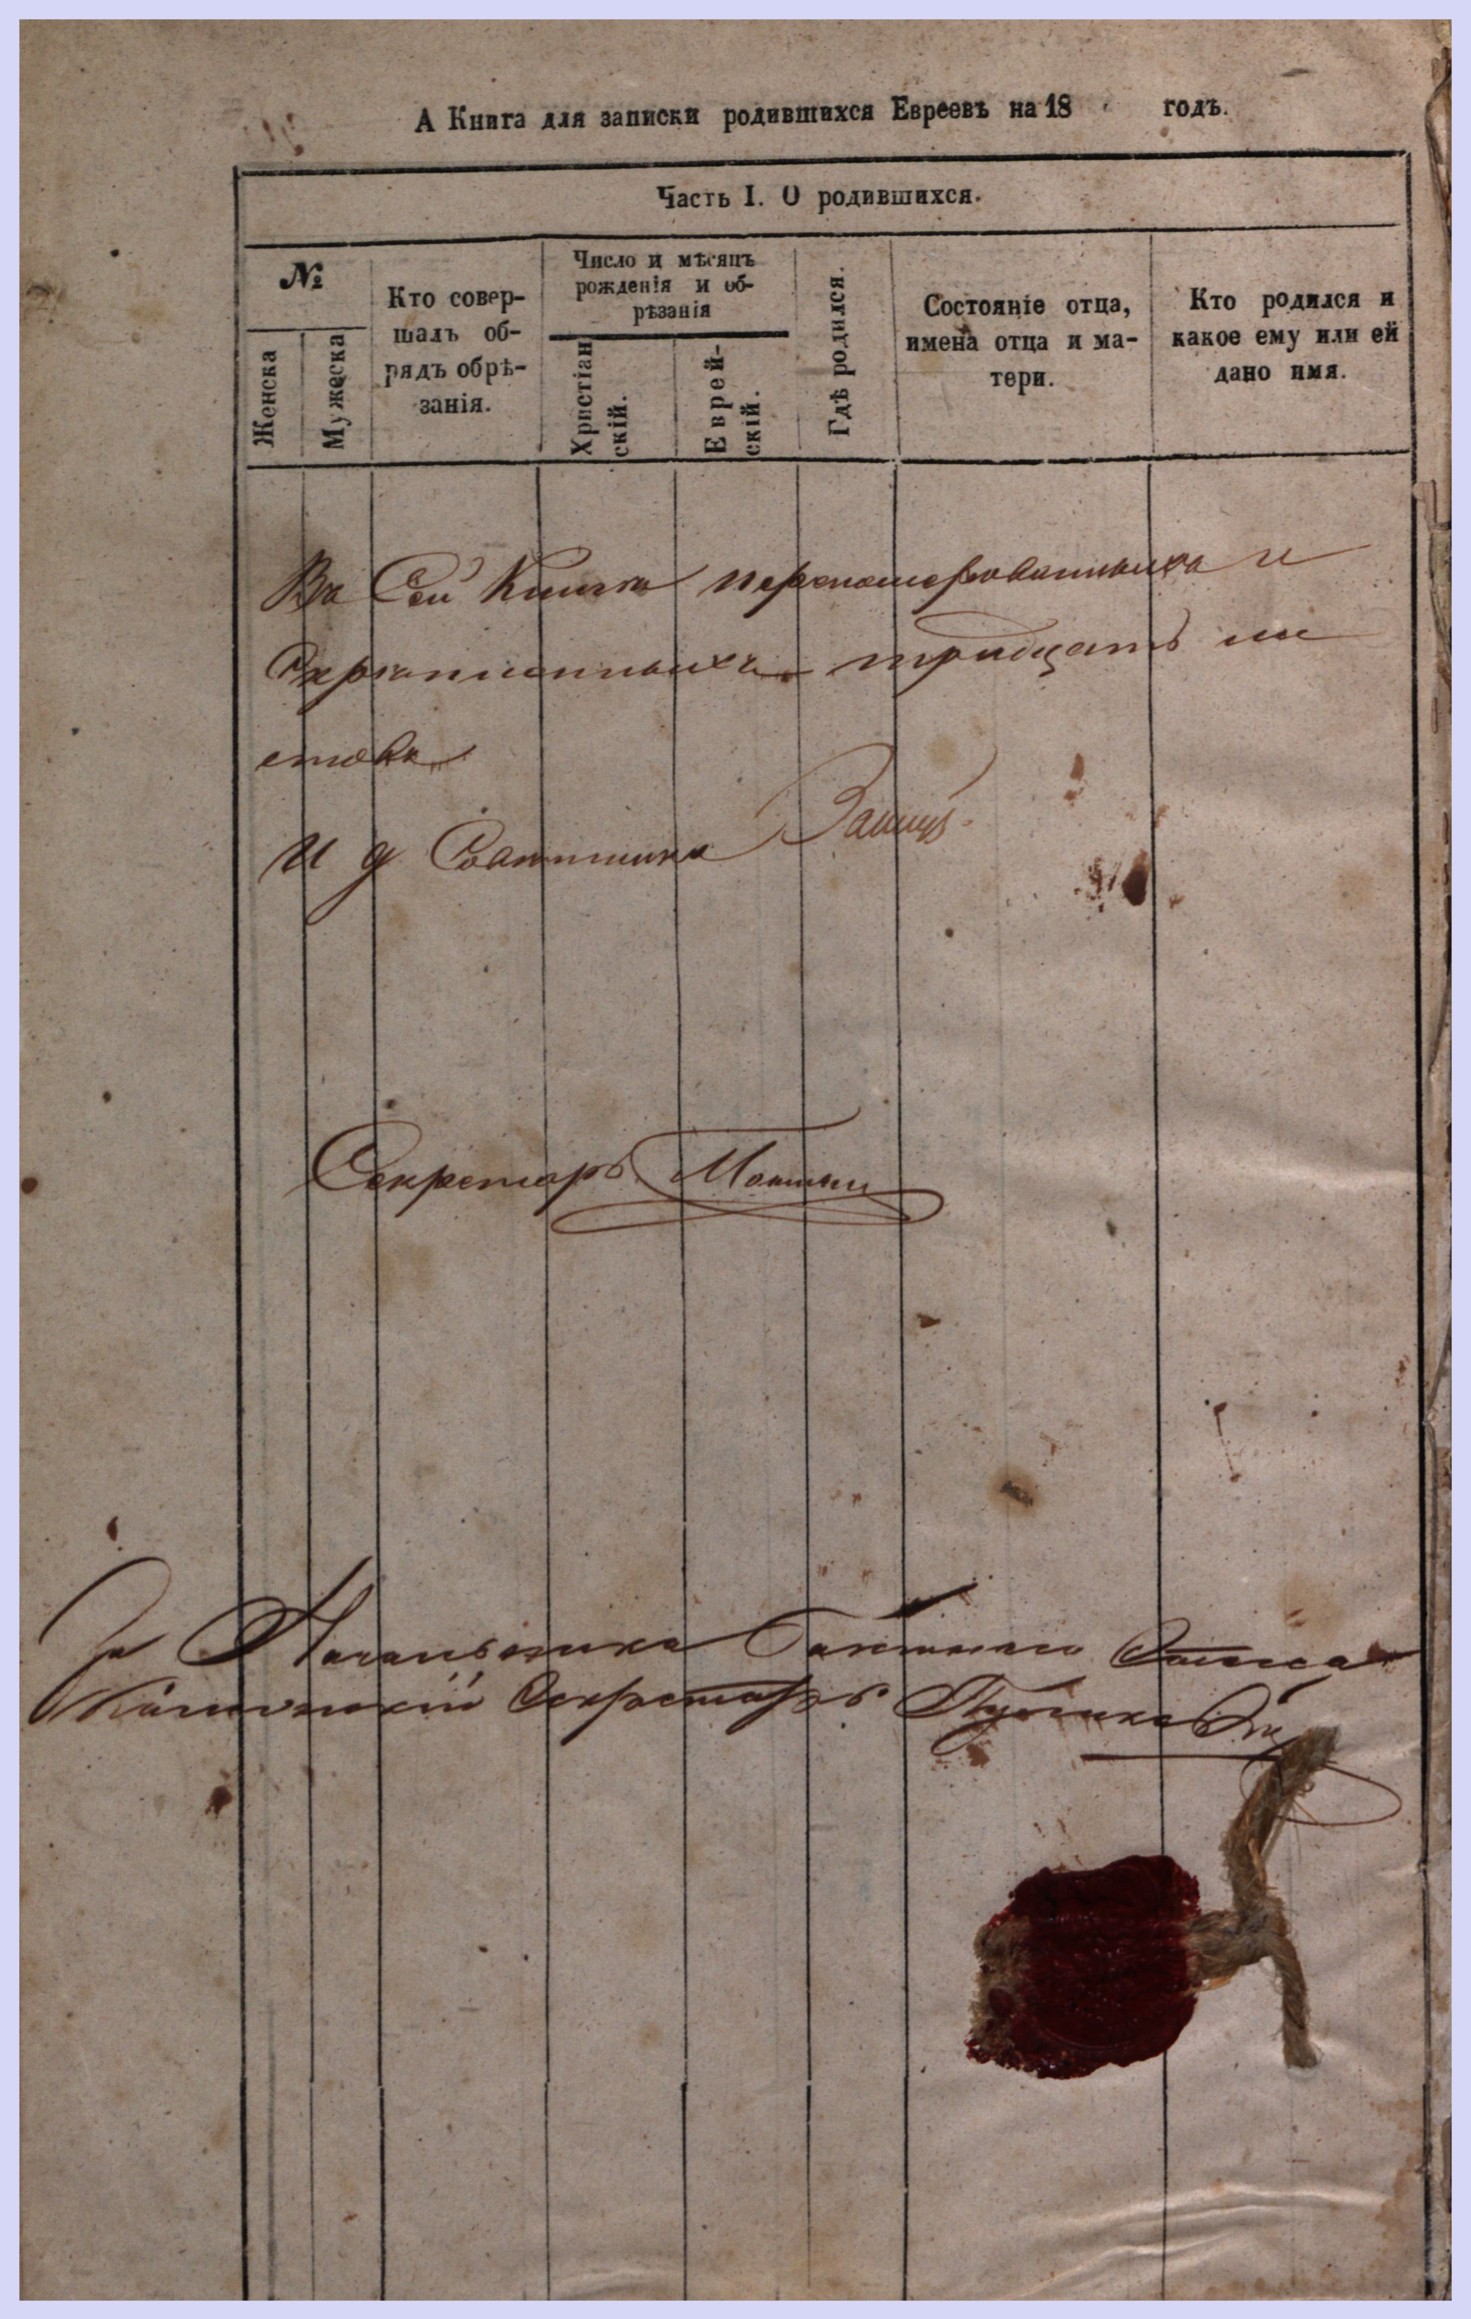 А Книга для записки родившихся Евреевъ на 18 годъ.
Часть I. О родившихся.
№
Женска
Мужеска
Кто совер-
шалъ об-
рядъ обрѣ-
занія.
Число и мѣсяцъ
рожденія и об-
рѣзанія
Христіан
скій.
Еврей-
скій.
Гдѣ родился.
Состояніе отца,
имена отца и ма-
тери.
Кто родился и
какое ему или ей
дано имя.
Въ Сей Книгѣ переномерованныхъ и
Скрѣпленныхъ тридцать ли
стовъ
И д Совѣтника
Секретарь
За Начальника
Секретарь